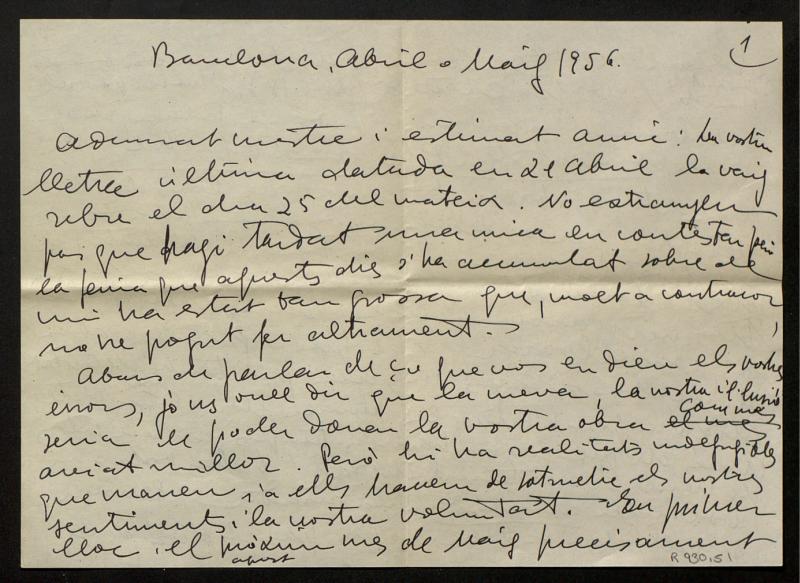 1
Barcelona, Abril o Maig 1956.
Admirat mestre i estimat amic: La vostra
lletra última datada en 21 Abril la vaig
rebre el dia 25 del mateix. No estranyeu
pas que hagi tardat una mica en contestar però
la feina que aquests dies s'ha acumulat sobre de
mi ha estat tan grossa que, molt a contracor,
no he pogut fer altrament.
Abans de parlar de ço que vos en dieu els vostres
errors, jo us vull dir que la meva, la nostra il·lusió
seria de poder donar la vostra obra el més com més
aviat millor. Però hi ha realitats indefugibles
que manen i a elles havem de sotmetre els nostres
sentiments i la nostra voluntat. En primer
lloc, el pròxim mes de Maig precisament
aquest
R. 930,51